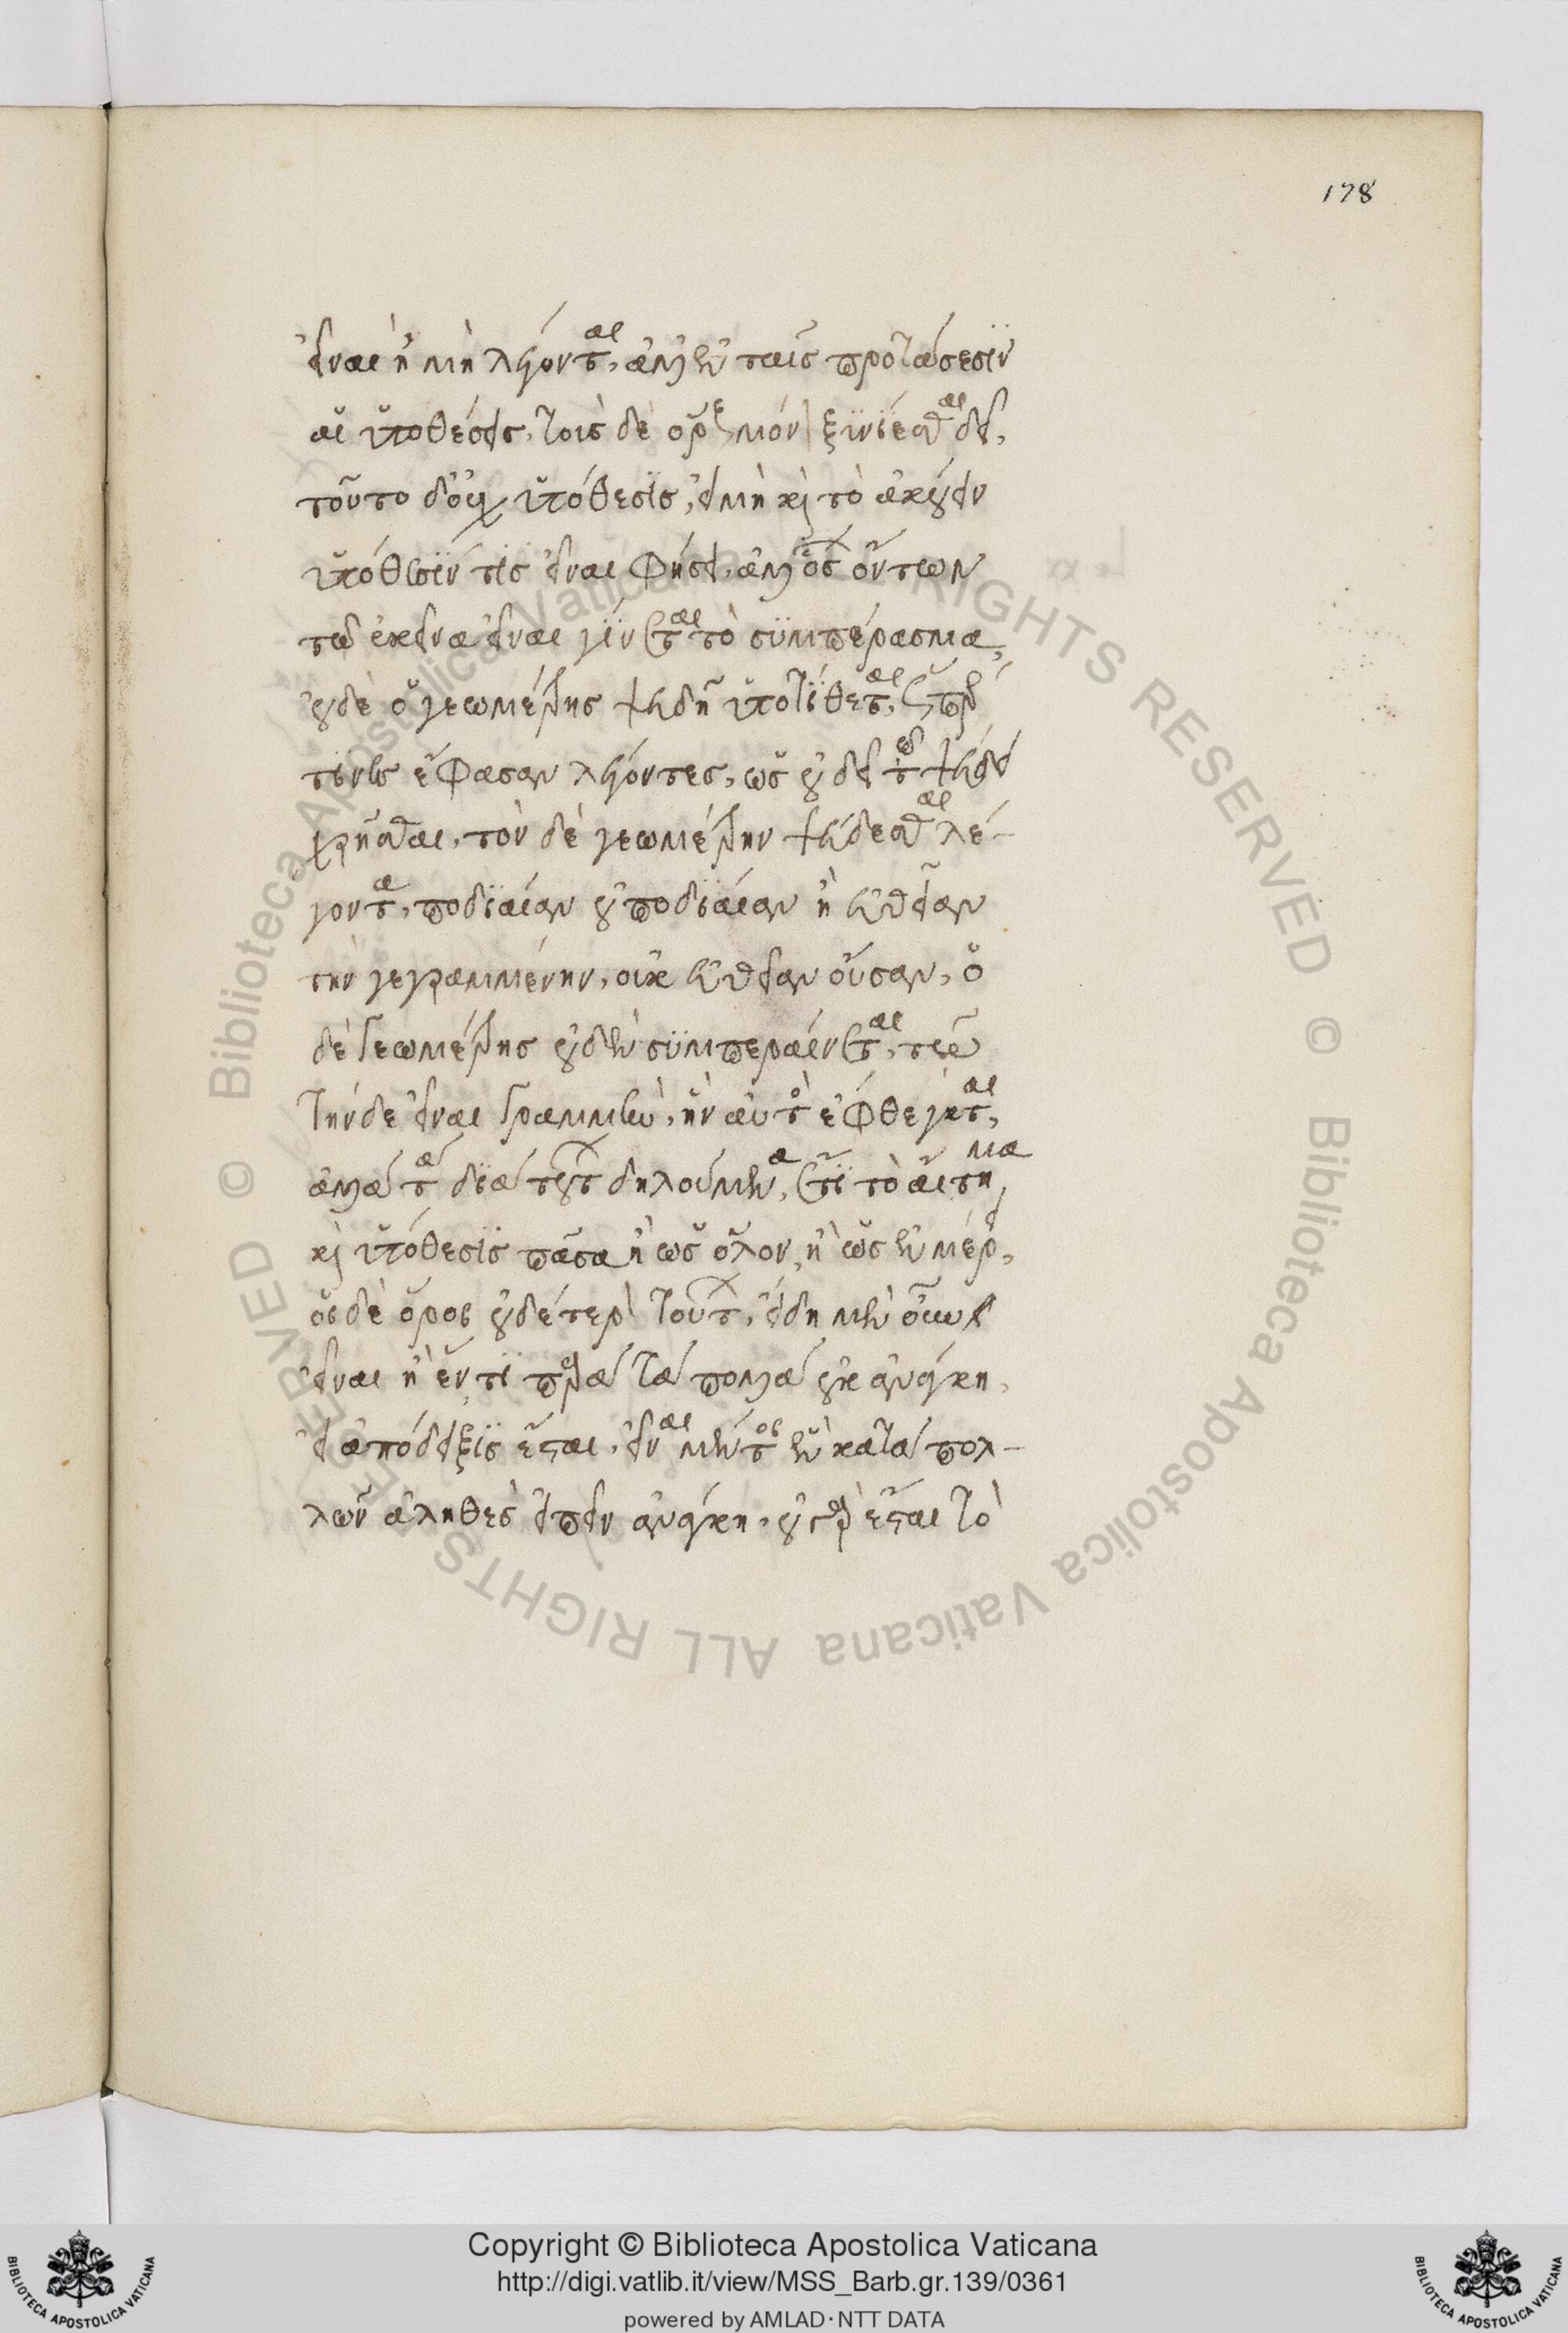 178
εἶναι ἢ μὴ λέγονται, ἀλλ' ἐν ταῖς προτάσεσιν
αἱ ὑποθέσεις, τοὺς δὲ ὅρους μόνον ξυνίεσθαι δεῖ,
τοῦτο δ' οὐχ ὑπόθεσις, εἰ μὴ καὶ τὸ ἀκούειν
ὑπόθεσίν τις εἶναι φήσει, ἀλλ' ὅσων ὄντων
τῷ ἐκεῖνα εἶναι γίνεται τὸ συμπέρασμα,
οὐδὲ ὁ γεωμέτρης ψευδῆ ὑποτίθεται, ὥσπερ
τινὲς ἔφασαν λέγοντες, ὡς οὐ δεῖ τῷ ψεύδει
χρῆσθαι, τὸν δὲ γεωμέτρην ψεύδεσθαι λέ-
γοντα, ποδιαίαν οὐ ποδιαίαν ἢ εὐθεῖαν
τὴν γεγραμμένην, οὐκ εὐθεῖαν οὖσαν, ὁ
δὲ γεωμέτρης οὐδὲν συμπεραίνεται, τῷ
τήνδε εἶναι γραμμὴν, ἣν αὐτὸς ἔφθεγκται,
ἀλλὰ τὰ διὰ τούτων δηλούμενα, ἔτι τὸ αἴτημα
καὶ ὑπόθεσις πᾶσα ἢ ὡς ὅλον, ἢ ὡς ἐν μέρει,
οἱ δὲ ὅροι οὐδέτερον τούτων, εἴδη μὲν οὖν
εἶναι ἢ ἕν τι παρὰ τὰ πολλὰ οὐκ ἀνάγκη,
εἰ ἀπόδειξις ἔσται, εἶναι μέντοι ἓν κατὰ πολ-
λῶν ἀληθὲς εἰπεῖν ἀνάγκη, οὐ γὰρ ἔσται τὸ
Copyright © Biblioteca Apostolica Vaticana
http://digi.vatlib.it/view/MSS_Barb.gr.139/0361
powered by AMLAD · NTT DATA